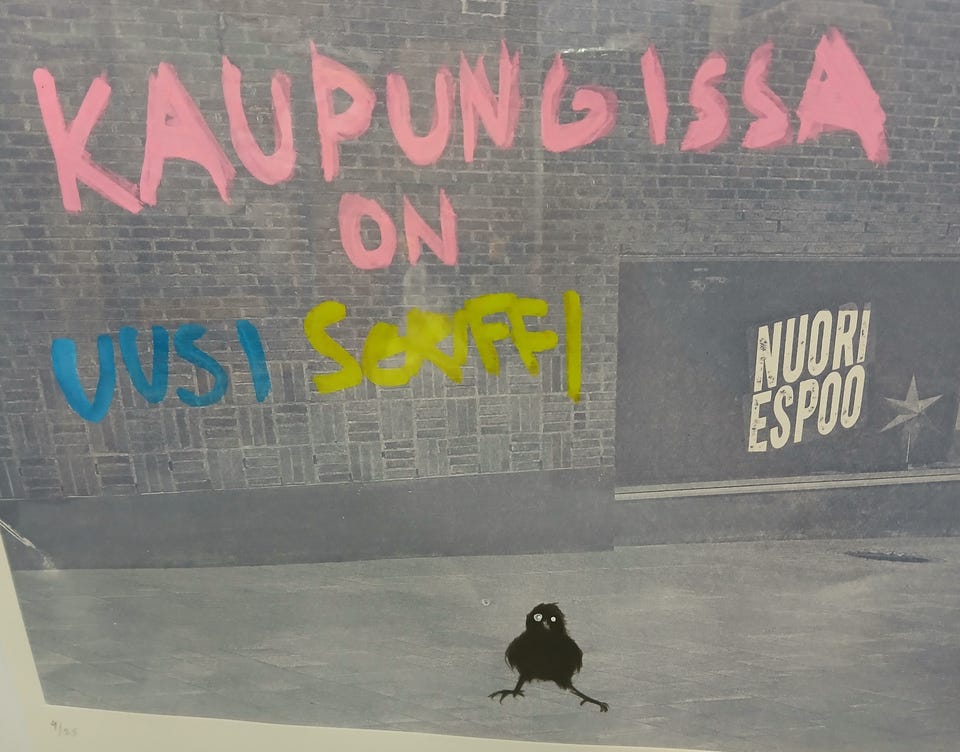 KAUPUNGISSA
ON
UUSI SOUFFI
NUORI
ESPOO
4/25